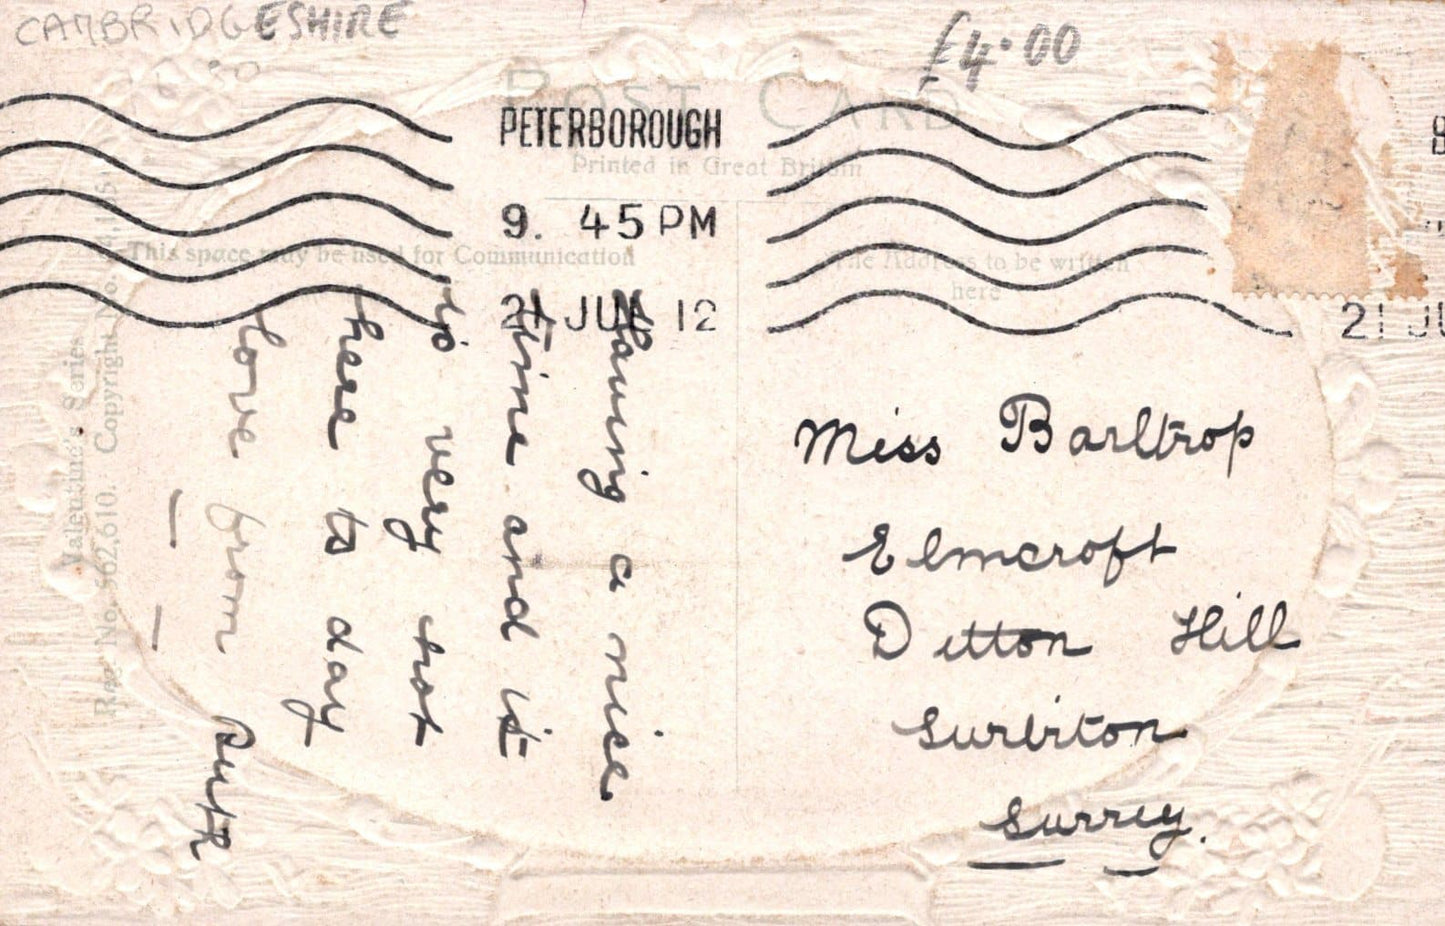 CAMBRIDGESHIRE
£4.00
POST CARD
PETERBOROUGH
Printed in Great Britain
9. 45 PM
21 JUL 12
21 JU
This space may be used for Communication
The Address to be written
here
Having a nice
time and it
is very hot
here to day
love from Ruth
Miss Barltrop
Elmcroft
Ditton Hill
Surbiton
Surrey.
Valentine's Series
Reg. No. 562,610. Copyright No.